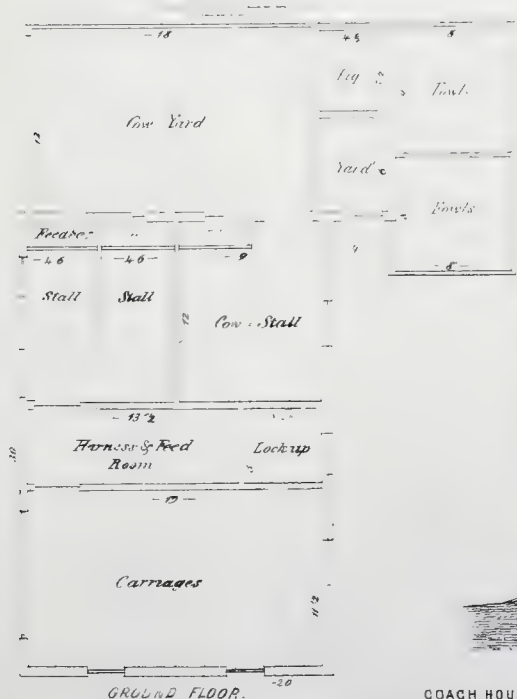 -18
4½
8
Cow Yard
12
Fowls
Yard
Fowls
-8-
Feeder
-46-
-46-
-9
Stall
Stall
12
Cow-Stall
-13½
Harness & Feed
Room
Lockup
30
-19-
Carriages
11½
-20
GROUND FLOOR.
COACH HOU